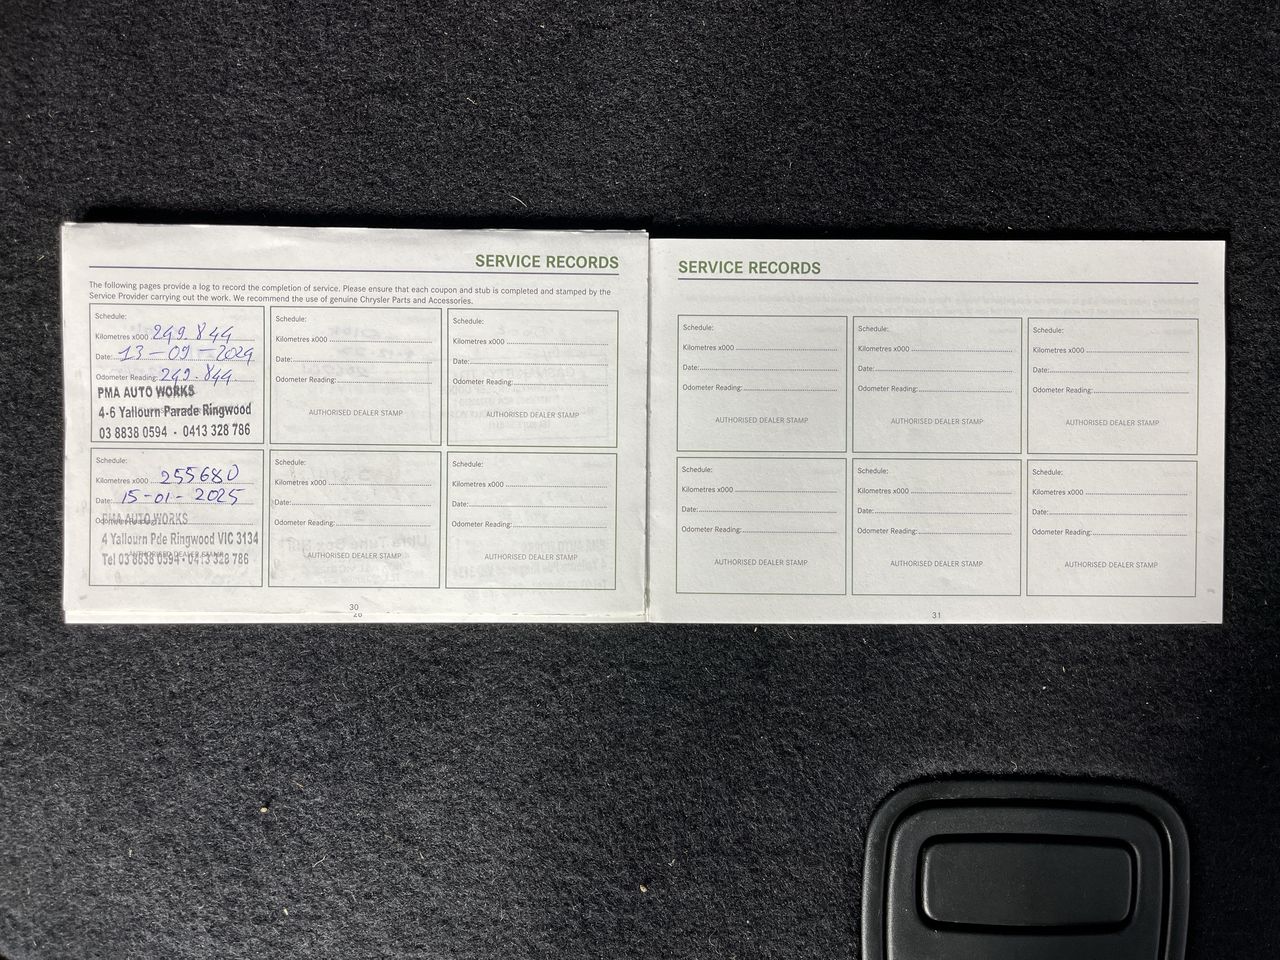 SERVICE RECORDS
The following pages provide a log to record the completion of service. Please ensure that each coupon and stub is completed and stamped by the
Service Provider carrying out the work. We recommend the use of genuine Chrysler Parts and Accessories.
Schedule:
Kilometres x000 249.844
Date: 13-09-2024
Odometer Reading: 249.844
PMA AUTO WORKS
4-6 Yallourn Parade Ringwood
03 8838 0594 - 0413 328 786
Schedule:
Kilometres x000
Date:
Odometer Reading:
AUTHORISED DEALER STAMP
Schedule:
Kilometres x000
Date:
Odometer Reading:
AUTHORISED DEALER STAMP
Schedule:
Kilometres x000 255680
Date: 15-01-2025
Odometer Reading:
PMA AUTO WORKS
4 Yallourn Pde Ringwood VIC 3134
AUTHORISED DEALER STAMP
Tel 03 8838 0594 - 0413 328 786
Schedule:
Kilometres x000
Date:
Odometer Reading:
AUTHORISED DEALER STAMP
Schedule:
Kilometres x000
Date:
Odometer Reading:
AUTHORISED DEALER STAMP
30
28
SERVICE RECORDS
Schedule:
Kilometres x000
Date:
Odometer Reading:
AUTHORISED DEALER STAMP
Schedule:
Kilometres x000
Date:
Odometer Reading:
AUTHORISED DEALER STAMP
Schedule:
Kilometres x000
Date:
Odometer Reading:
AUTHORISED DEALER STAMP
Schedule:
Kilometres x000
Date:
Odometer Reading:
AUTHORISED DEALER STAMP
Schedule:
Kilometres x000
Date:
Odometer Reading:
AUTHORISED DEALER STAMP
Schedule:
Kilometres x000
Date:
Odometer Reading:
AUTHORISED DEALER STAMP
31